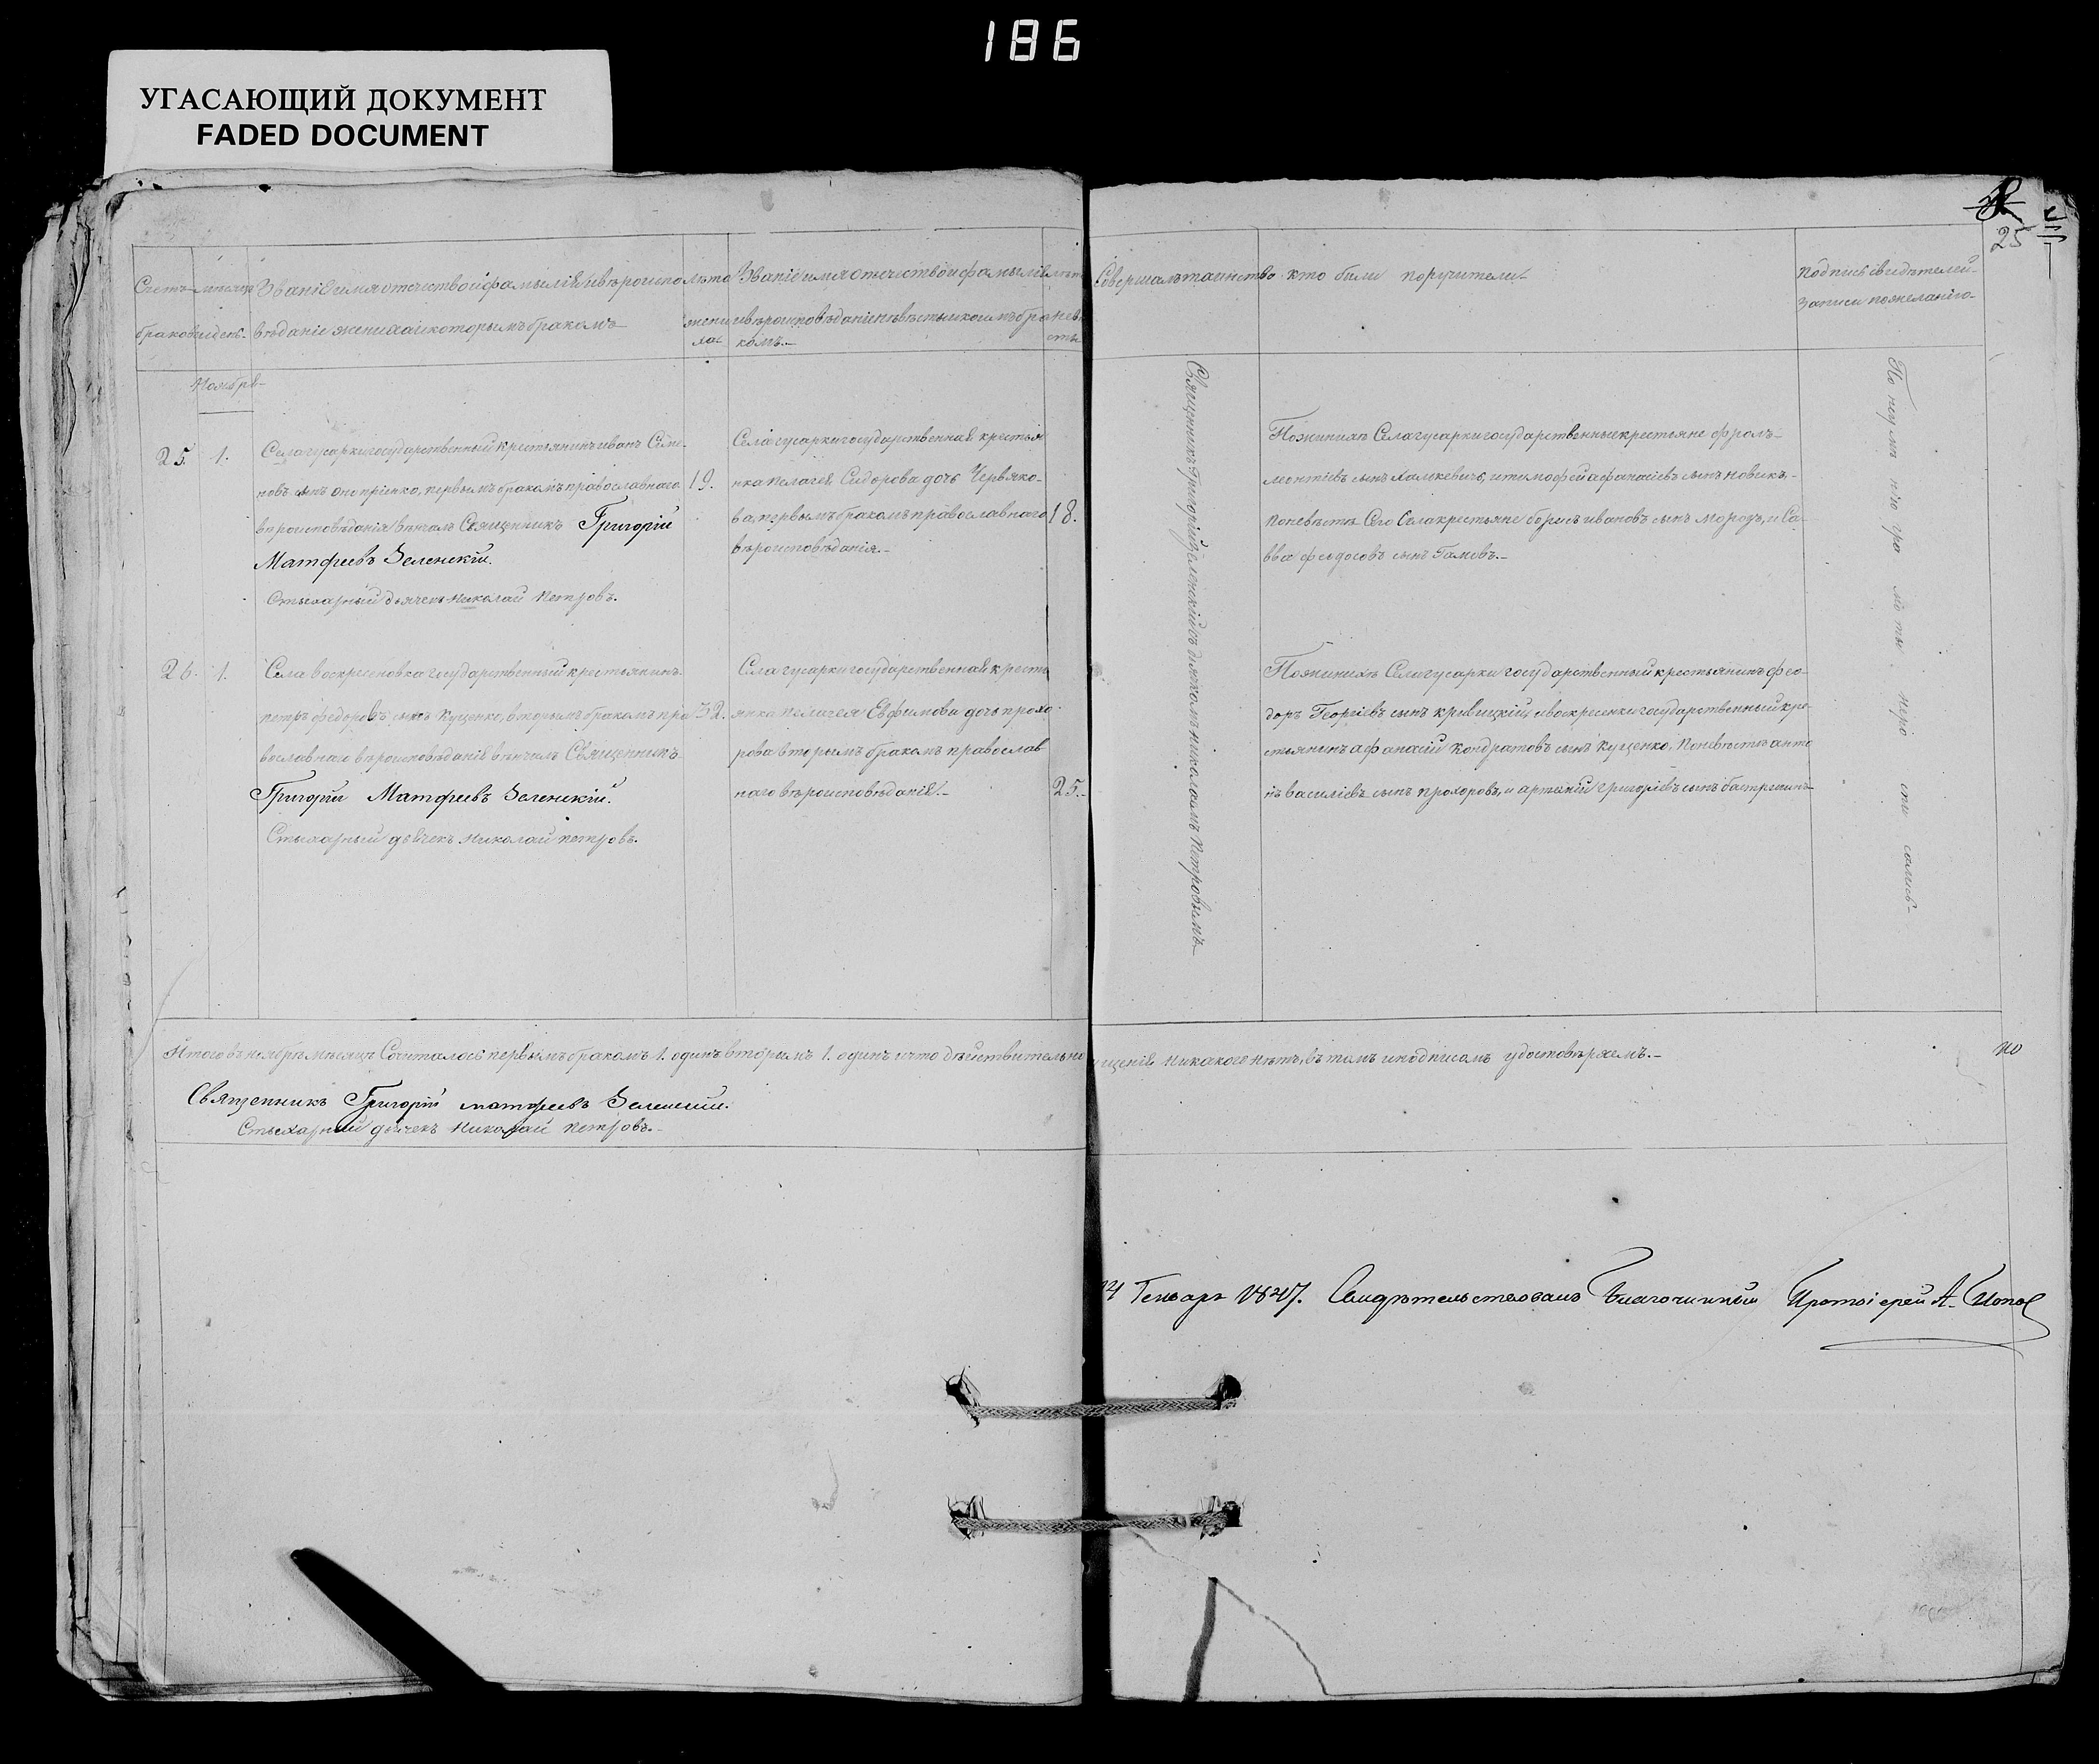 186
УГАСАЮЩИЙ ДОКУМЕНТ
FADED DOCUMENT
25
Счетъ
браковъ
месяцъ
и день.
Званіе имя отечество и фамылія и вѣроиспо
вѣданіе жениха и которымъ бракомъ
лѣта
жени
ха
Званіе имя отечество и фамылія
и вѣроисповѣданіе невѣсты и коимъ бра
комъ.
лѣта
невѣ
сты
Совершалъ таинство
кто были поручители
подпись свидѣтелей
записи по желанію
Ноября
25. 1.
Села гусарки государственный крестьянинъ иванъ Семе-
новъ сынъ оноприенко, первымъ бракомъ православнаго
вѣроисповѣданія вѣнчалъ Священникъ Григорій
Матфеевъ Зеленскій.
Стыхарный дьячекъ Николай Петровъ.
19.
Села гусарки государственная крестьян
нка пелагея Сидорова дочь Червяко-
ва, первымъ бракомъ православнаго
вѣроисповѣданія.
18.
Священникъ Григорій Зеленскій съ дьячкомъ николаемъ Петровымъ
По женихѣ Села гусарки государственные крестьяне фролъ
леонтіевъ сынъ Халкевичъ, и тимофей афанасіевъ сынъ новикъ,
по невѣстѣ Сего Села крестьяне борисъ ивановъ сынъ морозъ, и Са-
вва феодосовъ сынъ
По неумѣнію грамоты
26. 1.
Села воскресеновка государственный крестьянинъ
петръ федоровъ сынъ Куценко, вторымъ бракомъ пра
вославнаго вѣроисповѣданія вѣнчалъ Священникъ
Григорій Матфеевъ Зеленскій.
Стыхарный дьячекъ Николай петровъ.
32.
Села гусарки государственная кресть
янка пелагея Евфимова дочь прохо
рова вторымъ бракомъ православ
наго вѣроисповѣданія.
25.
По женихѣ Села гусарки государственный крестьянинъ фео-
доръ Георгіевъ сынъ кривицкій, и воскресенки государственный кре-
стьянинъ афанасій кондратовъ сынъ куценко, по невѣстѣ анто
нъ василіевъ сынъ прохоровъ, и артемій григоріевъ сынъ
Итого въ ноябрѣ мѣсяцѣ Сочиталось первымъ бракомъ 1. одинъ вторымъ 1. одинъ и что дѣйствительно
никакого нѣтъ, въ томъ и подписомъ удостовѣряемъ.
Священникъ Григорій матфеевъ Зеленскій.
Стыхарный дьячекъ Николай петровъ.
14 Генваря 1847. Свидѣтельствовалъ Благочинный Протоіерей А. Попов